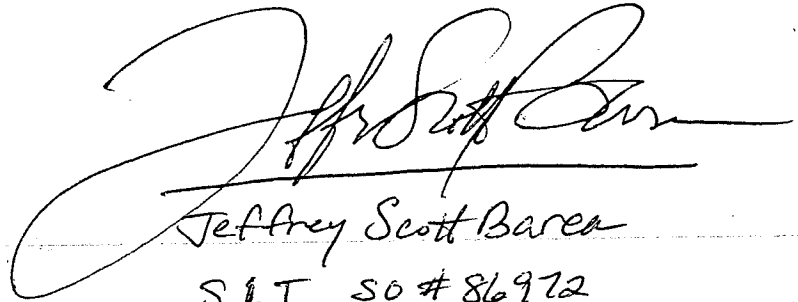 Jeffrey Scott Barea
Jeffrey Scott Barea
SO # 86972